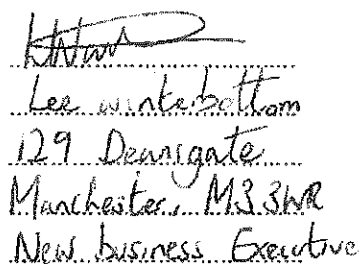 Lee winterbottom
129 Deansgate
Manchester, M3 3WR
New business Executive